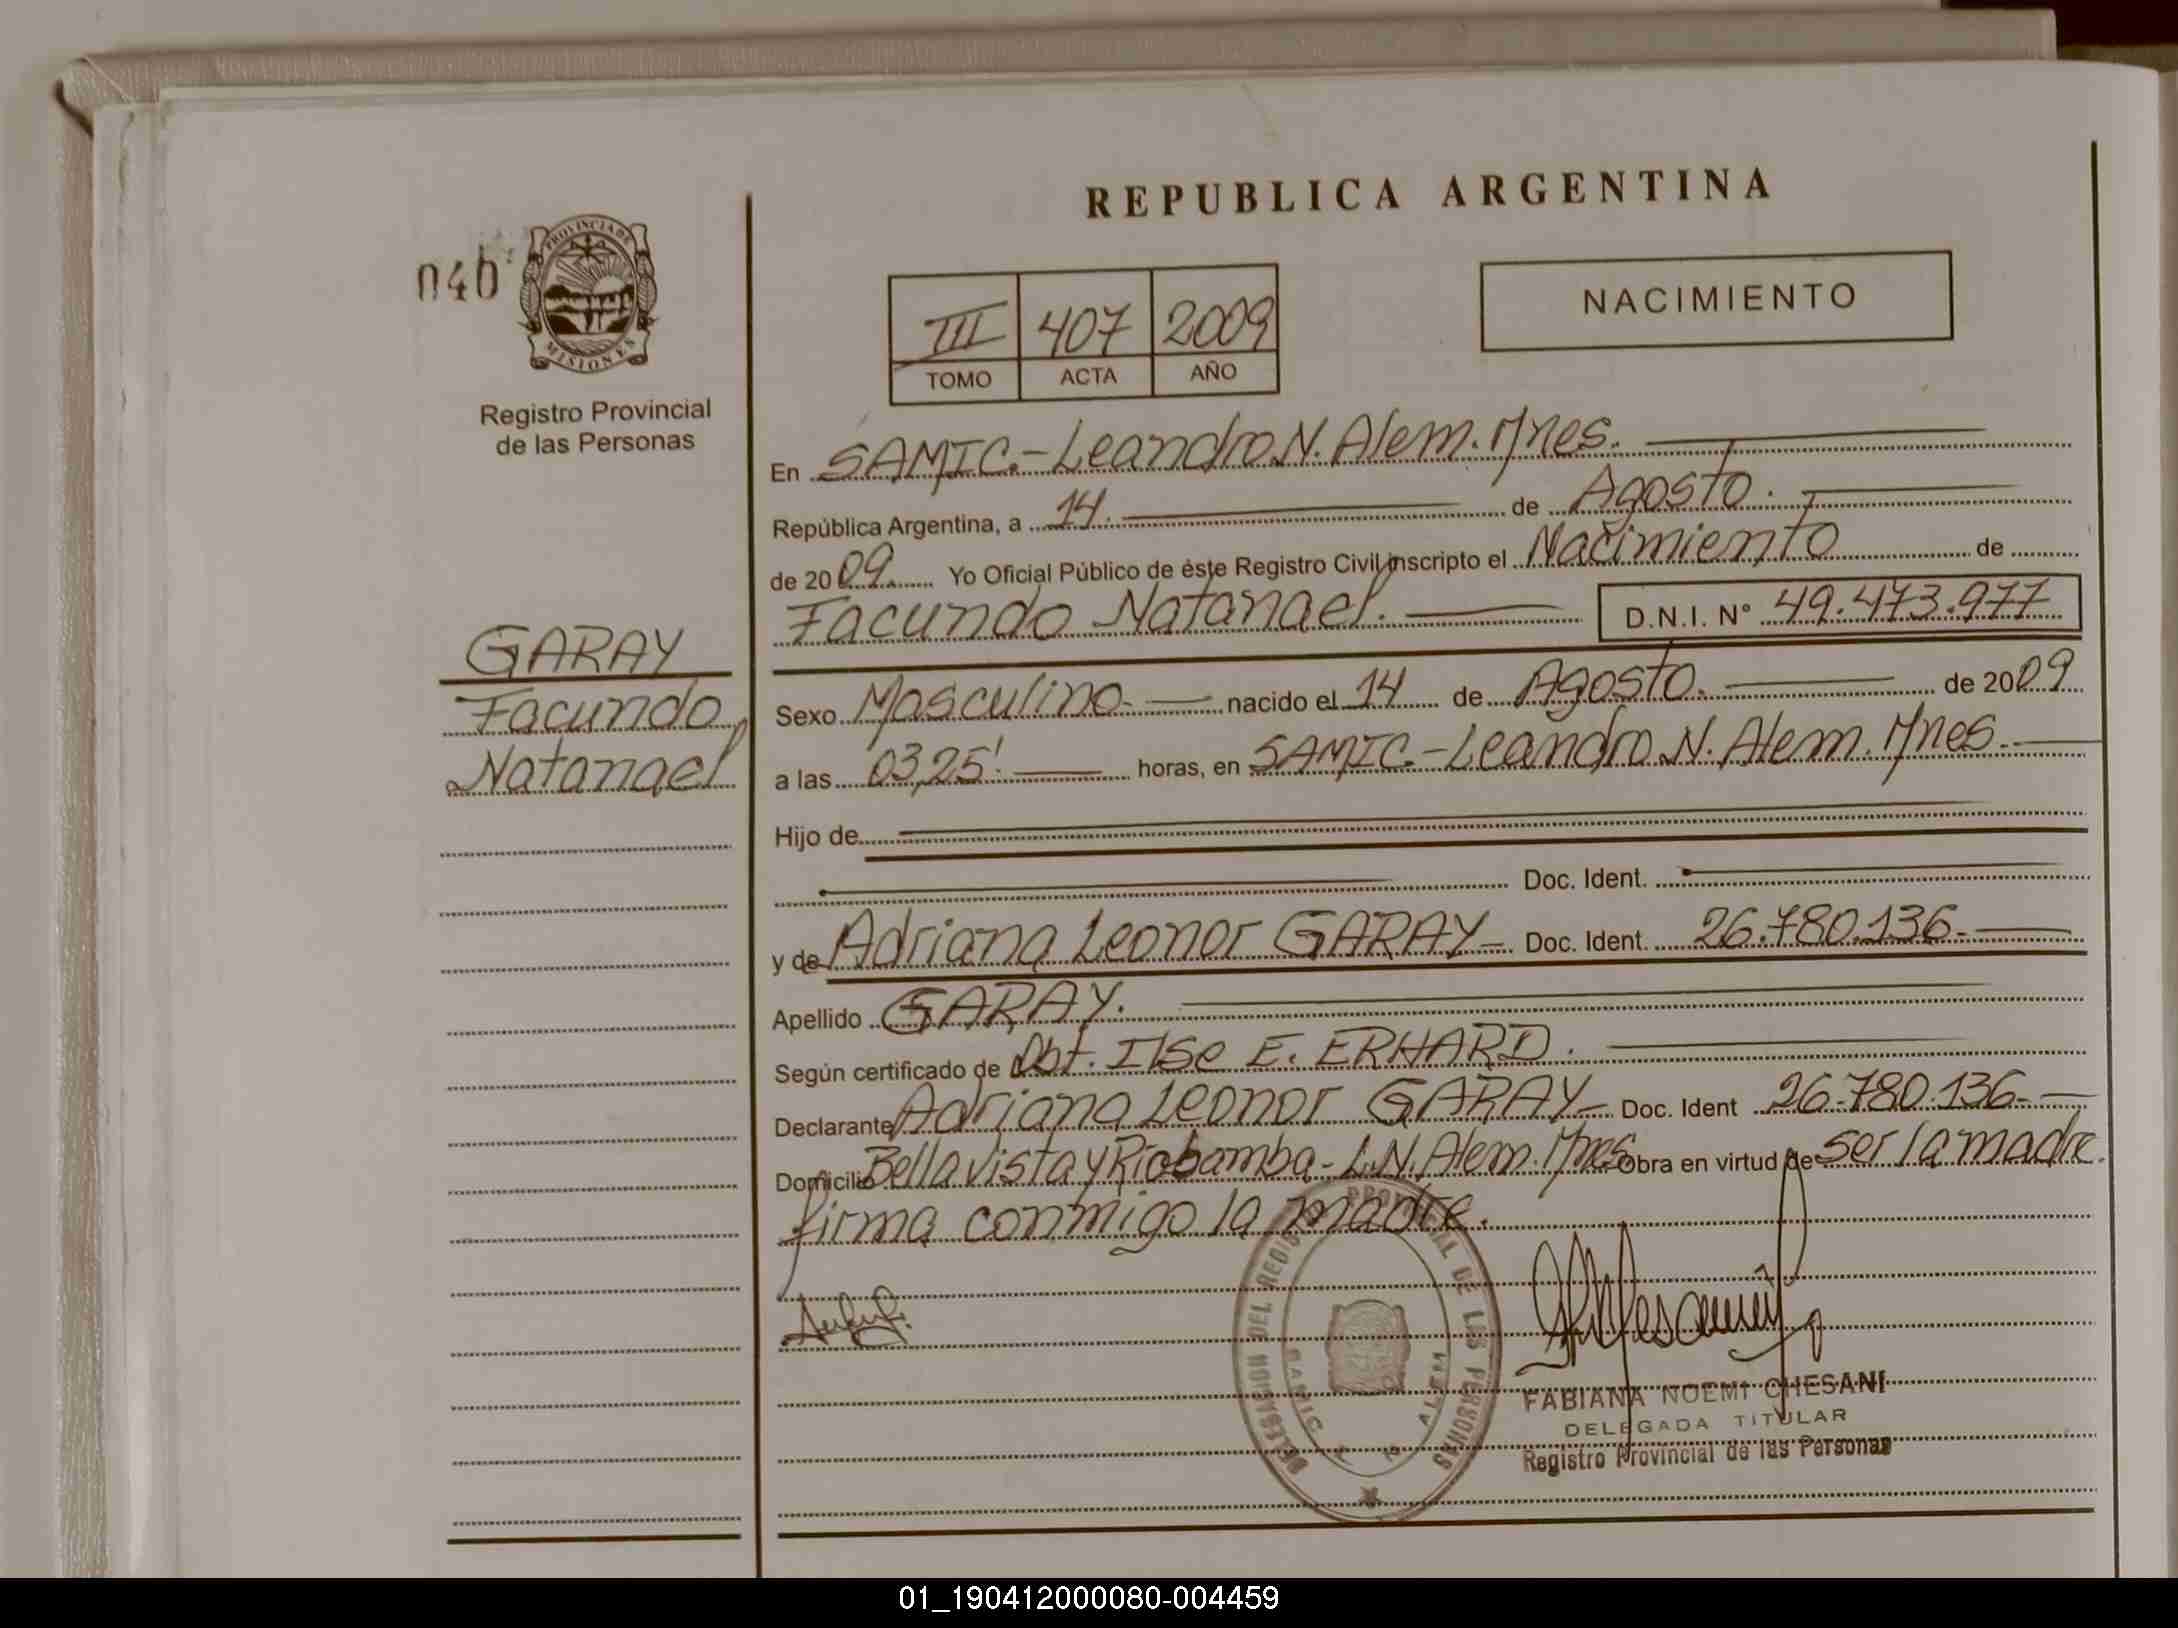 REPUBLICA ARGENTINA
040
PROVINCIA DE
MISIONES
Registro Provincial
de las Personas
III 407 2009
TOMO ACTA AÑO
NACIMIENTO
GARAY
Facundo
Natanael
En SAMIC.-Leandro N. Alem. Mnes.
República Argentina, a 14. de Agosto.
de 2009. Yo Oficial Público de éste Registro Civil inscripto el Nacimiento de
Facundo Natanael. D.N.I. N° 49.473.977
Sexo Masculino- nacido el 14 de Agosto. de 2009
a las 03,25'. horas, en SAMIC.-Leandro N. Alem. Mnes.
Hijo de
Doc. Ident.
y de Adriana Leonor GARAY- Doc. Ident. 26.780.136-
Apellido GARAY.
Según certificado de Obt. Ilse E. ERHARD.
Declarante Adriana Leonor GARAY- Doc. Ident 26.780.136-
Domicilio Bella vista y Riobamba-L.N. Alem. Mnes Obra en virtud de ser la madre.
firma conmigo la madre.
DELEGACION DEL REGISTRO PROVINCIAL DE LAS PERSONAS
SAMIC L N ALEM
FABIANA NOEMI CHESANI
DELEGADA TITULAR
Registro Provincial de las Personas
01_190412000080-004459